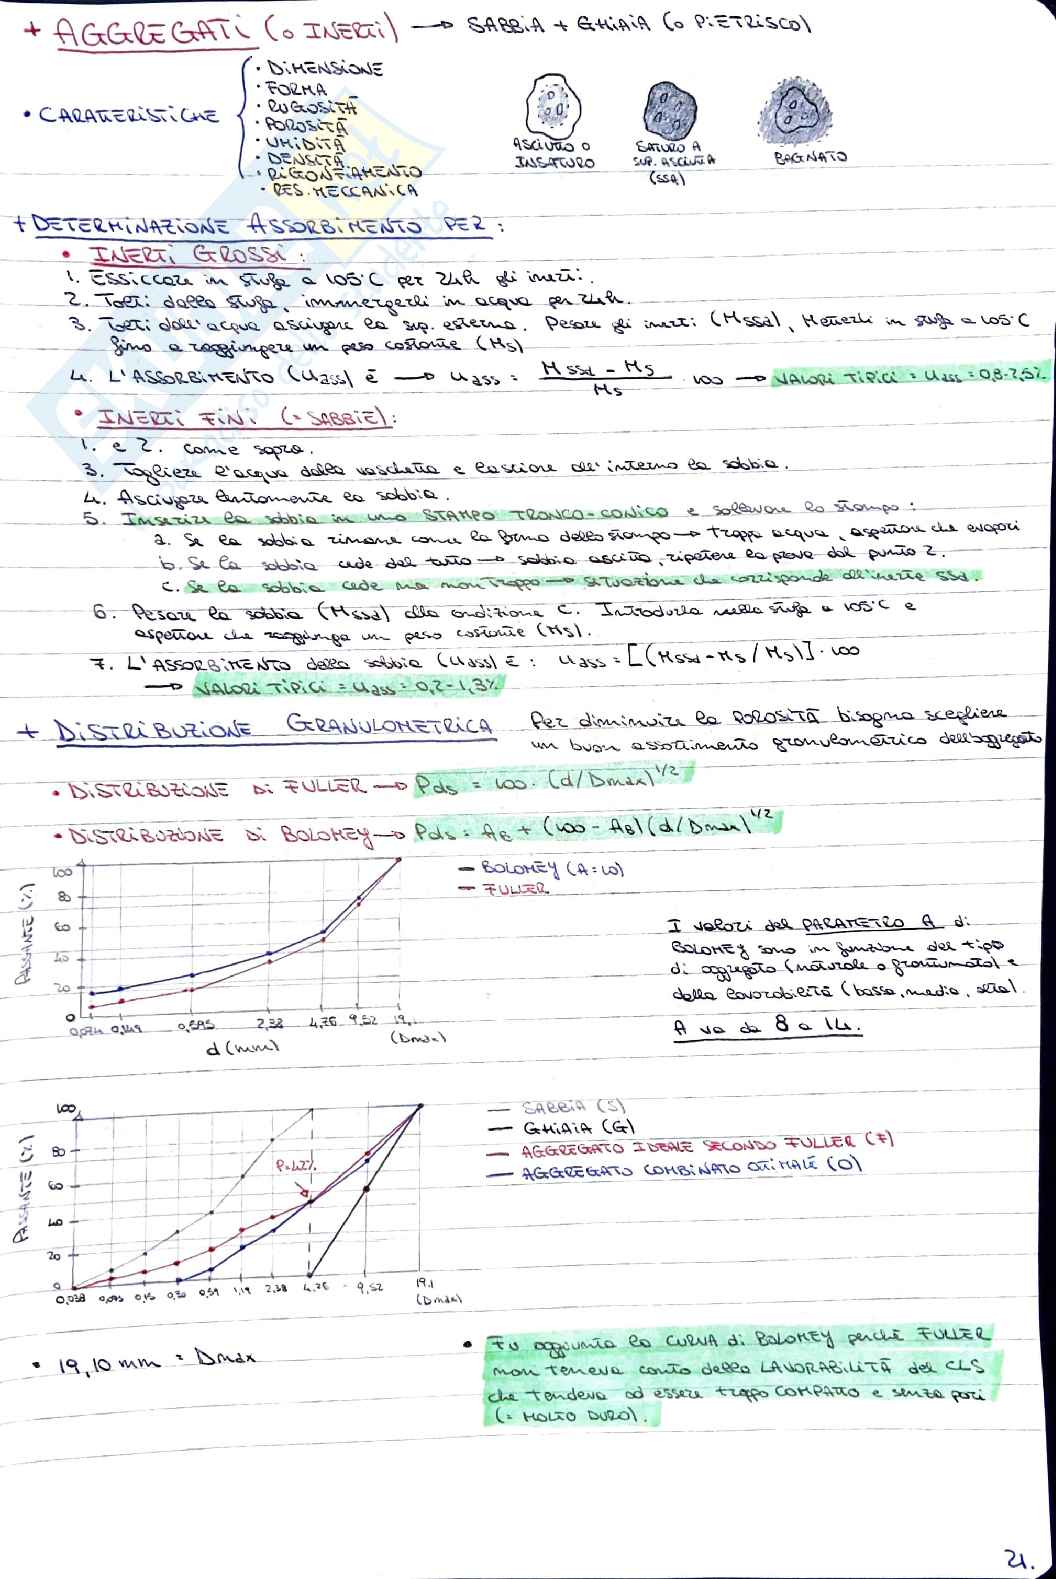 + AGGREGATI (o INERTI) → SABBIA + GHIAIA (o PIETRISCO)
• CARATTERISTICHE
• DIMENSIONE
• FORMA
• RUGOSITÀ
• POROSITÀ
• UMIDITÀ
• DENSITÀ
• RIGONFIAMENTO
• RES. MECCANICA
ASCIUTTO O
INSATURO
SATURO A
SUP. ASCIUTTA
(SSA)
BAGNATO
+ DETERMINAZIONE ASSORBIMENTO PER:
• INERTI GROSSI:
1. Essiccare in stufa a 105°C per 24h gli inerti.
2. Tolti dalla stufa, immergerli in acqua per 24h.
3. Tolti dall'acqua asciugare la sup. esterna. Pesare gli inerti (Mssd), Metterli in stufa a 105°C
fino a raggiungere un peso costante (Ms)
4. L'ASSORBIMENTO (uass) è → uass = (Mssd - Ms) / Ms · 100 → VALORI TIPICI = uass = 0,8-2,5%
• INERTI FINI (= SABBIE):
1. e 2. come sopra.
3. Togliere l'acqua dalla vaschetta e lasciare all'interno la sabbia.
4. Asciugare lentamente la sabbia.
5. Inserire la sabbia in uno STAMPO TRONCO-CONICO e sollevare lo stampo:
a. Se la sabbia rimane come la forma dello stampo → troppa acqua, aspettare che evapori
b. Se la sabbia cede del tutto → sabbia asciutta, ripetere la prova dal punto 2.
c. Se la sabbia cede ma non troppo → situazione che corrisponde all'inerte ssd.
6. Pesare la sabbia (Mssd) alla condizione C. Introdurla nella stufa a 105°C e
aspettare che raggiunga un peso costante (Ms).
7. L'ASSORBIMENTO della sabbia (uass) È: uass = [(Mssd-Ms/Ms)] · 100
→ VALORI TIPICI = uass = 0,2-1,3%
+ DISTRIBUZIONE GRANULOMETRICA
Per diminuire la POROSITÀ bisogna scegliere
un buon assortimento granulometrico dell'aggregato
• DISTRIBUZIONE DI FULLER → Pds = 100 · (d/Dmax)^1/2
• DISTRIBUZIONE DI BOLOMEY → Pds = AB + (100 - AB)(d/Dmax)^1/2
PASSANTE (%)
100
80
60
40
20
0
0,074 0,149 0,595 2,38 4,76 9,52 19,1
(Dmax)
d (mm)
— BOLOMEY (A=10)
— FULLER
I valori del PARAMETRO A di
BOLOMEY sono in funzione del tipo
di aggregato (naturale o frantumato) e
della lavorabilità (bassa, media, alta).
A va da 8 a 14.
PASSANTE (%)
100
80
60
40
20
0
P=42%
0,038 0,075 0,15 0,30 0,59 1,19 2,38 4,76 9,52 19,1
(Dmax)
— SABBIA (S)
— GHIAIA (G)
— AGGREGATO IDEALE SECONDO FULLER (F)
— AGGREGATO COMBINATO OTTIMALE (O)
• 19,10 mm = Dmax
• Fu aggiunta la CURVA di BOLOMEY perchè FULLER
non teneva conto della LAVORABILITÀ del CLS
che tendeva ad essere troppo COMPATTO e senza pori
(= MOLTO DURO).
21.